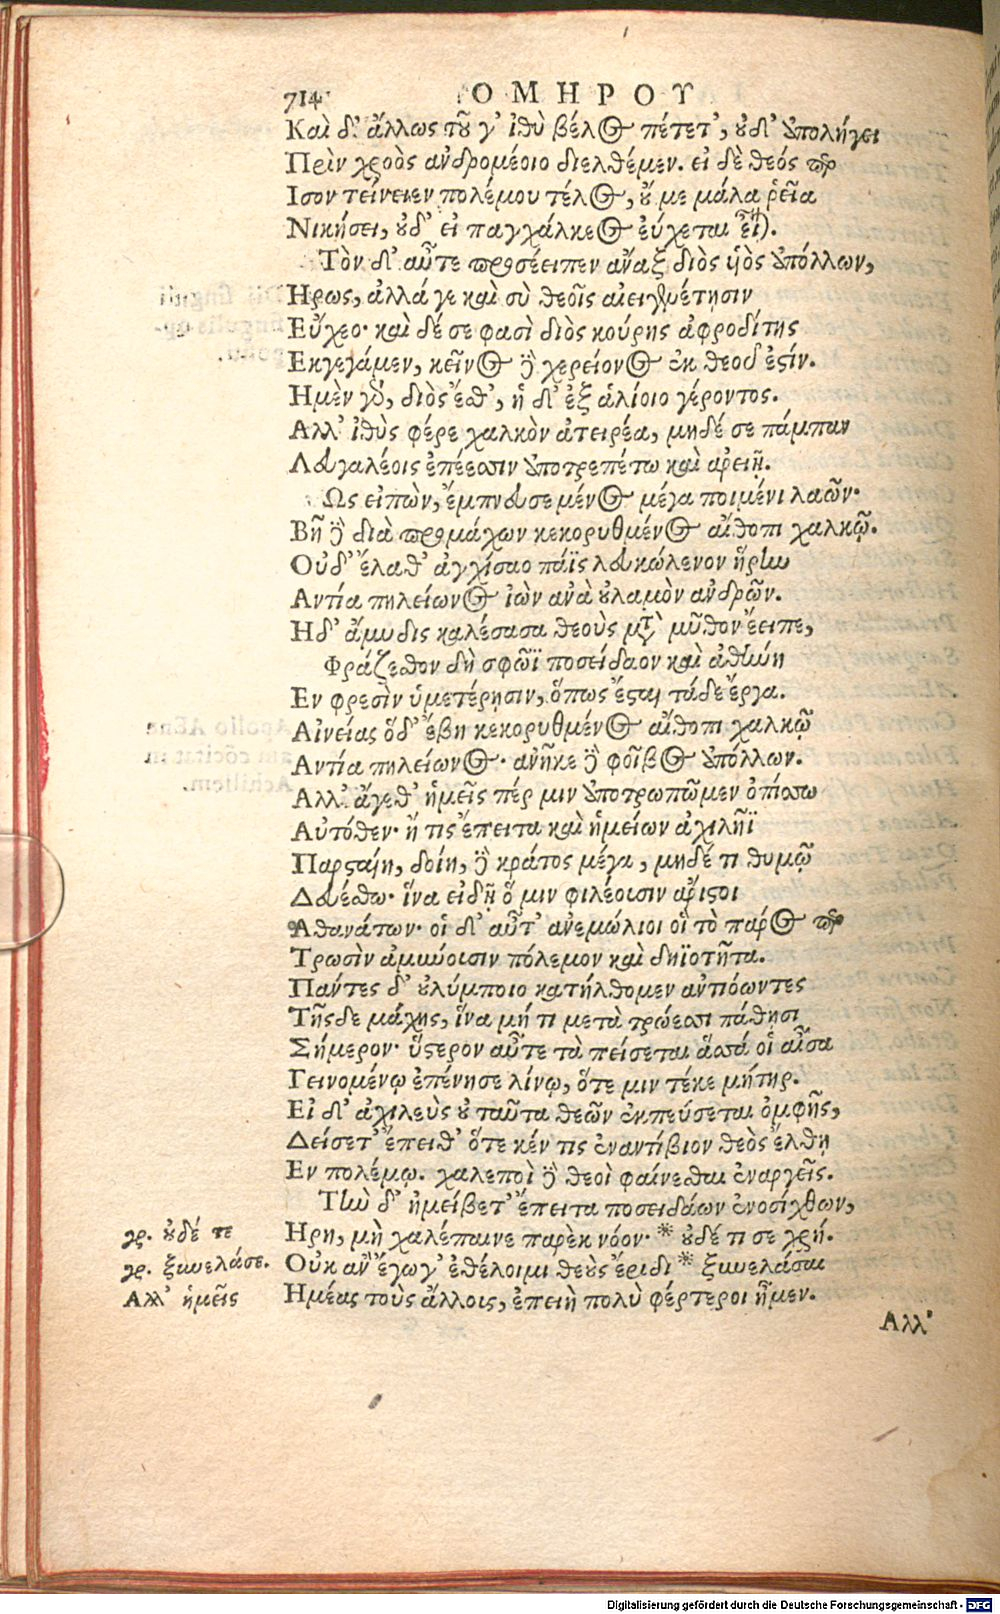 714 ΟΜΗΡΟΥ
Καὶ δ' ἄλλως τοῦ γ' ἰθὺ βέλος πέτετ', οὐδ' ἀπολήγει
Πρὶν χροὸς ἀνδρομέοιο διελθέμεν. εἰ δὲ θεός περ
Ισον τείνειεν πολέμου τέλος, οὔ με μάλα ῥεῖα
Νικήσει, οὐδ' εἰ παγχάλκεος εὔχεται εἶναι.
Τὸν δ' αὖτε προσέειπεν ἄναξ διὸς υἱὸς ἀπόλλων,
Ηρως, ἀλλά γε καὶ σὺ θεοῖς αἰειγενέτησιν
Εὔχεο· καὶ δέ σε φασὶ διὸς κούρης ἀφροδίτης
Εκγεγάμεν, κεῖνος δὲ χερείονος ἐκ θεοῦ ἐστίν.
Ημὲν γὰρ, διὸς ἔσθ', ἡ δ' ἐξ ἁλίοιο γέροντος.
Αλλ' ἰθὺς φέρε χαλκὸν ἀτειρέα, μηδέ σε πάμπαν
Λευγαλέοις ἐπέεσσιν ἀποτρεπέτω καὶ ἀρειῇ.
Ως εἰπὼν, ἔμπνευσε μένος μέγα ποιμένι λαῶν·
Βῆ δὲ διὰ προμάχων κεκορυθμένος αἴθοπι χαλκῷ.
Οὐδ' ἔλαθ' ἀγχίσαο πάϊς λευκώλενον ἥρην
Αντία πηλείωνος ἰὼν ἀνὰ οὐλαμὸν ἀνδρῶν.
Ηδ' ἄμυδις καλέσασα θεοὺς μετὰ μῦθον ἔειπε,
Φράζεσθον δὴ σφῶϊ ποσείδαον καὶ ἀθήνη
Εν φρεσὶν ὑμετέρησιν, ὅπως ἔσται τάδε ἔργα.
Αἰνείας ὅδ' ἔβη κεκορυθμένος αἴθοπι χαλκῷ
Αντία πηλείωνος· ἀνῆκε δὲ φοῖβος ἀπόλλων.
Αλλ' ἄγεθ' ἡμεῖς πέρ μιν ἀποτρωπῶμεν ὀπίσσω
Αὐτόθεν· ἤ τις ἔπειτα καὶ ἡμείων ἀχιλῆϊ
Παρσταίη, δοίη, δὲ κράτος μέγα, μηδέ τι θυμῷ
Δευέσθω· ἵνα εἰδῇ ὅ μιν φιλέοισιν ἄριστοι
Αθανάτων· οἱ δ' αὖτ' ἀνεμώλιοι οἳ τὸ πάρος περ
Τρωσὶν ἀμύνοισιν πόλεμον καὶ δηϊοτῆτα.
Πάντες δ' οὐλύμποιο κατήλθομεν ἀντιόωντες
Τῆςδε μάχης, ἵνα μή τι μετὰ τρώεσσι πάθησι
Σήμερον· ὕστερον αὖτε τὰ πείσεται ἅσσά οἱ αἶσα
Γεινομένῳ ἐπένησε λίνῳ, ὅτε μιν τέκε μήτηρ.
Εἰ δ' ἀχιλεὺς οὐ ταῦτα θεῶν ἐκπεύσεται ὀμφῆς,
Δείσετ' ἔπειθ' ὅτε κέν τις ἐναντίβιον θεὸς ἔλθῃ
Εν πολέμῳ. χαλεποὶ δὲ θεοὶ φαίνεσθαι ἐναργεῖς.
Τὴν δ' ἠμείβετ' ἔπειτα ποσειδάων ἐνοσίχθων,
γρ. οὐδέ τε Ηρη, μὴ χαλέπαινε παρὲκ νόον· * οὐδέ τι σε χρή.
γρ. ξυνελάσε. Οὐκ ἂν ἔγωγ' ἐθέλοιμι θεοὺς ἔριδι * ξυνελάσαι
Αλλ' ἡμεῖς Ημέας τοὺς ἄλλοις, ἐπειὴ πολὺ φέρτεροι ἦμεν.
Αλλ'
Digitalisierung gefördert durch die Deutsche Forschungsgemeinschaft - DFG